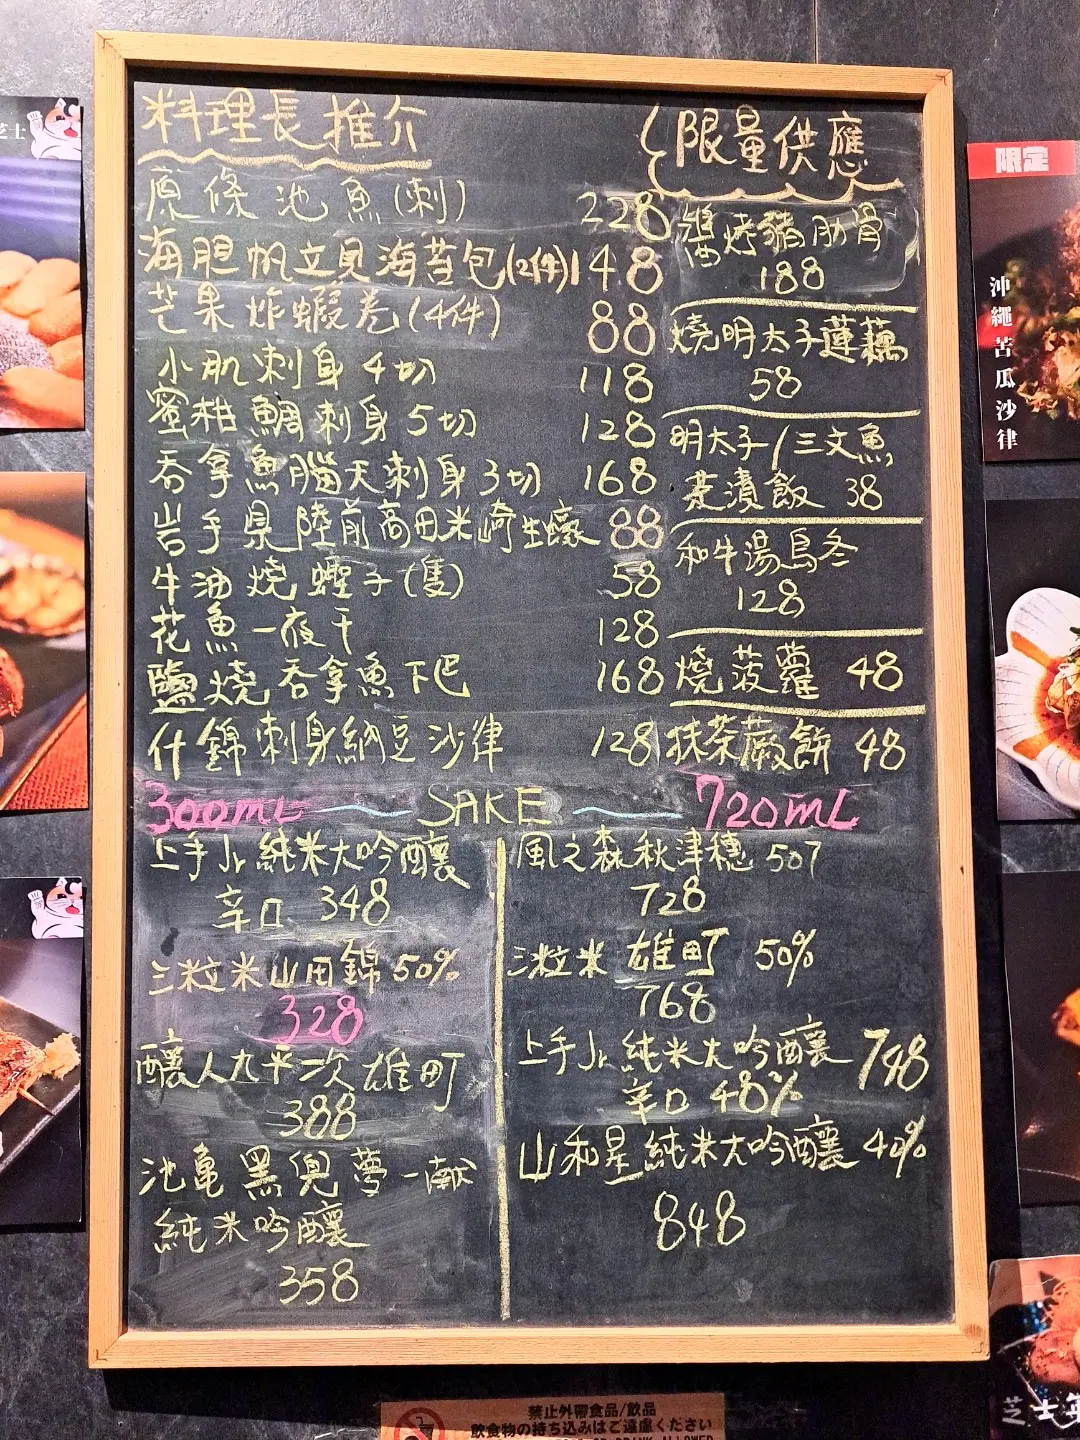 料理長推介
原條池魚(刺) 228
海胆帆立貝海苔包(2件) 148
芒果炸蝦卷(4件) 88
小肌刺身4切 118
蜜柑鯛刺身5切 128
吞拿魚腦天刺身3切 168
岩手県陸前高田米崎生蠔 88
牛油燒蟶子(隻) 58
花魚一夜干 128
鹽燒吞拿魚下巴 168
什錦刺身納豆沙律 128
限量供應
醬烤豬肋骨
188
燒明太子蓮藕
58
明太子/三文魚
茶漬飯 38
和牛湯烏冬
128
燒菠蘿 48
抹茶蕨餅 48
300ML SAKE 720ML
上手Jr純米大吟釀
辛口 348
三粒米山田錦50%
328
釀人九平次雄町
388
池亀黑兜夢一献
純米吟釀
358
風之森秋津穗 507
728
三粒米 雄町 50%
768
上手Jr純米大吟釀 748
辛口 48%
山和星純米大吟釀 40%
848
芝士
限定
沖繩苦瓜沙律
芝士
禁止外帶食品/飲品
飲食物の持ち込みはご遠慮ください